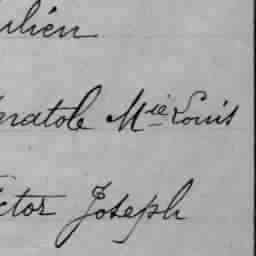 ulien
natole Mie Louis
ctor Joseph